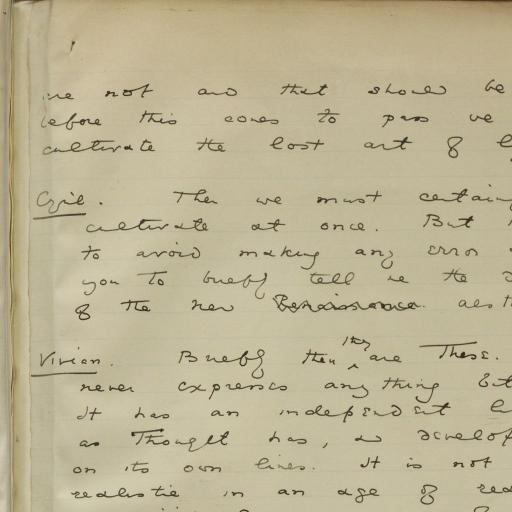 are not and that should be
before this comes to pass we
cultivate the lost art of
Cyril. Then we must certain
cultivate at once. But
to avoid making any error
you to briefly tell me the
of the new aesth
Vivian. Briefly then they are These.
never expresses anything
It has an independent
as Thought has, & develop
on its own lines. It is not
realistic in an age of rea